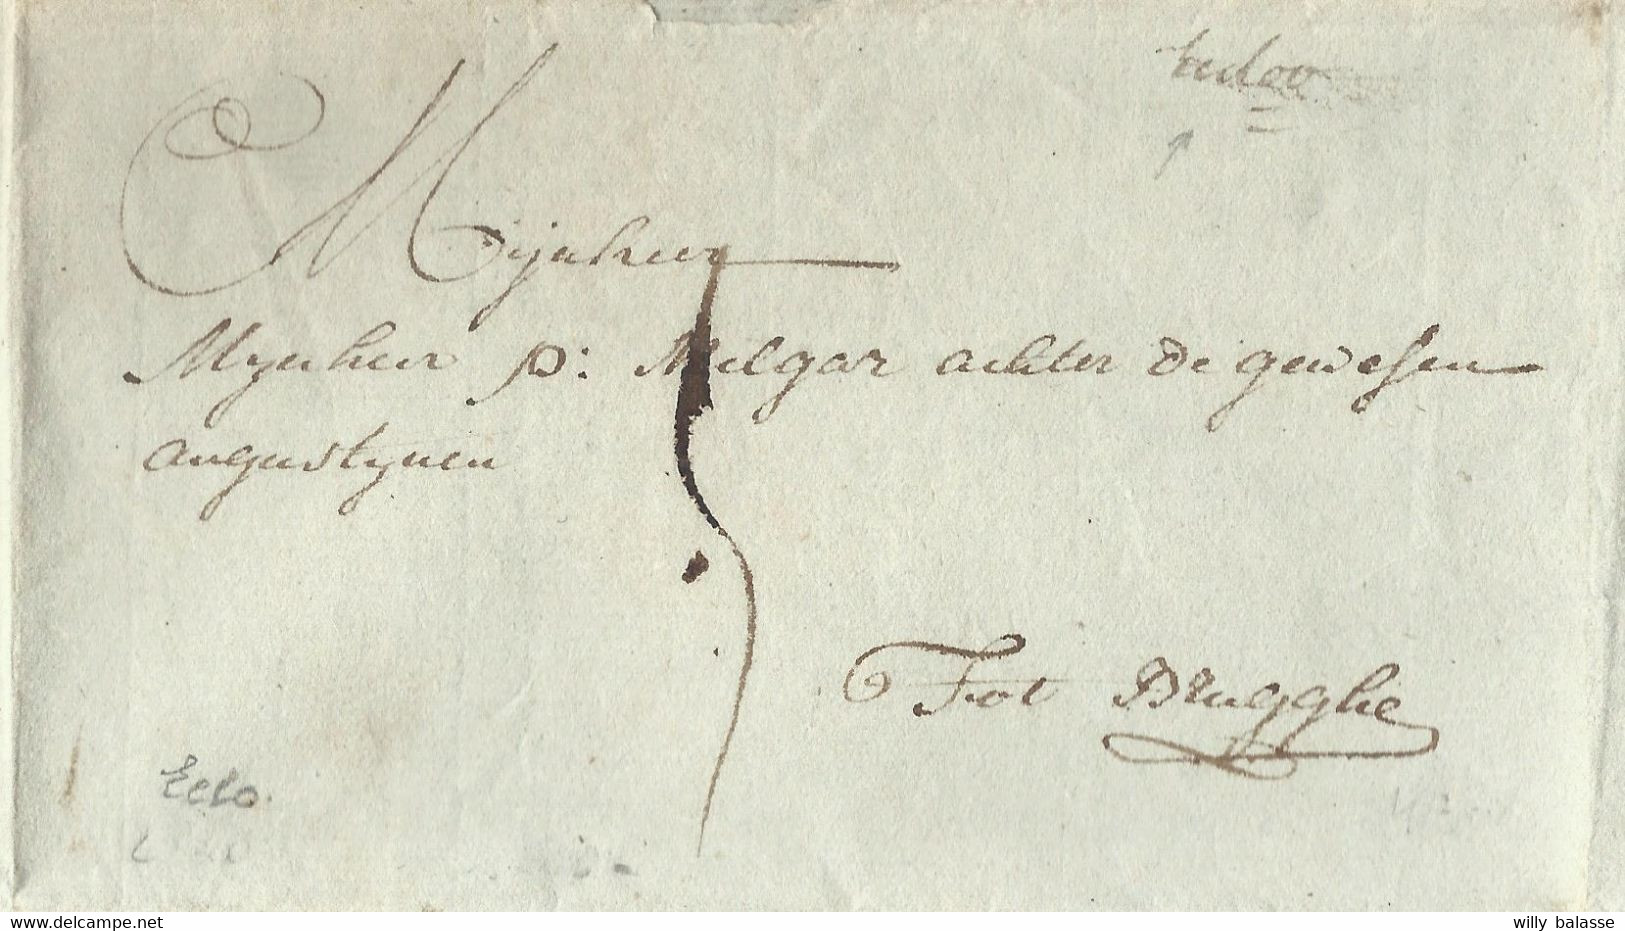 Eecloo
Mijnheer
Mynheer p: Melgar achter de gewesen
augustynen
5
Tot Brugghe
Eeklo.
delcampe.net
willy balasse